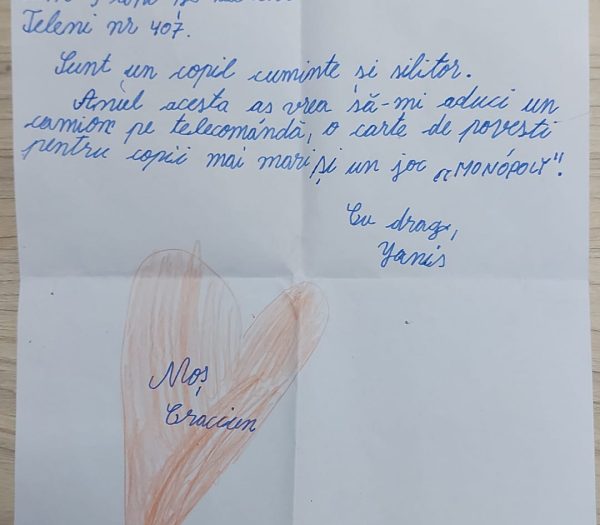 Teleni nr 407.
Sunt un copil cuminte si silitor.
Anul acesta as vrea să-mi aduci un
camion pe telecomandă, o carte de povesti
pentru copii mai mari, și un joc „MONÓPOLY".
Cu drag,
Yanis
Moș
Crăciun